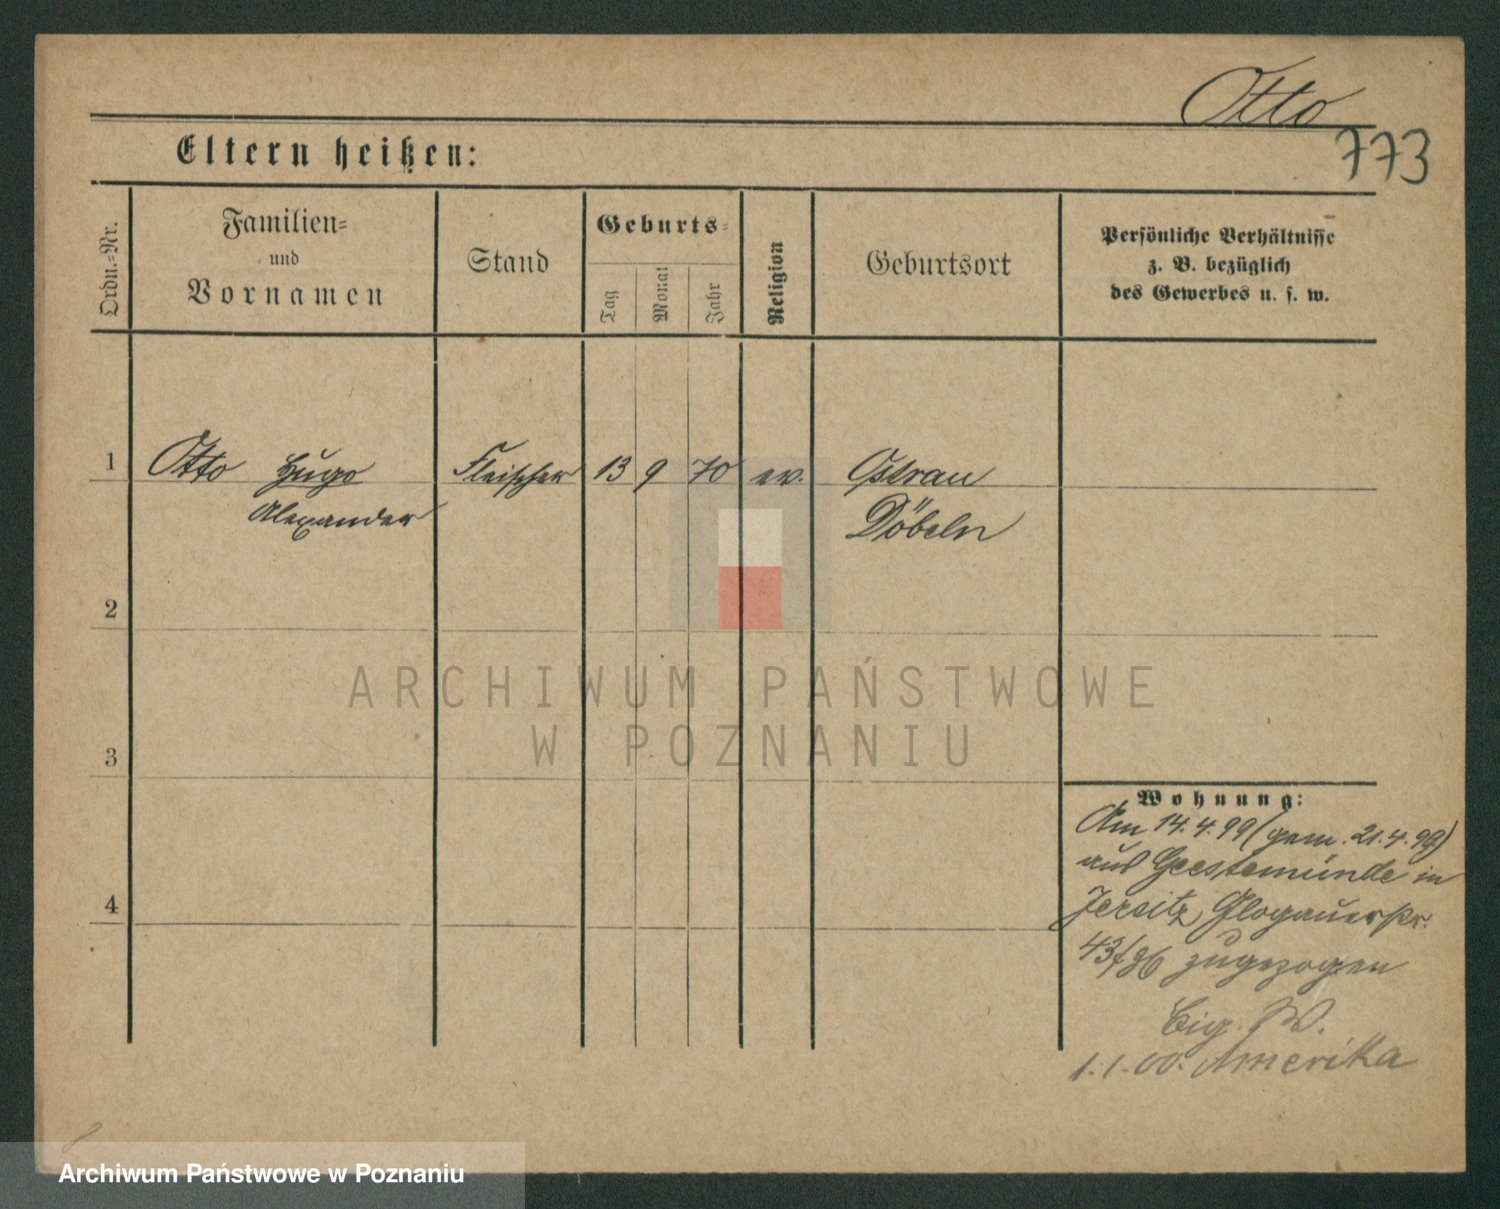 Otto
773
Eltern heißen:
Ordn.-Nr.
Familien-
und
Vornamen
Stand
Geburts-
Tag
Monat
Jahr
Religion
Geburtsort
Persönliche Verhältnisse
z. B. bezüglich
des Gewerbes u. s. w.
1 Otto Hugo Fleischer 13 9 70 ev. Ostrau
Alexander Döbeln
2
ARCHIWUM PAŃSTWOWE
W POZNANIU
3
Wohnung:
Am 14.4.99 (gem. 21.4.99)
aus Geestemünde in
4
Jersitz, Glogauerstr.
43/ zugezogen
Eig. W.
1.1.00. Amerika
Archiwum Państwowe w Poznaniu